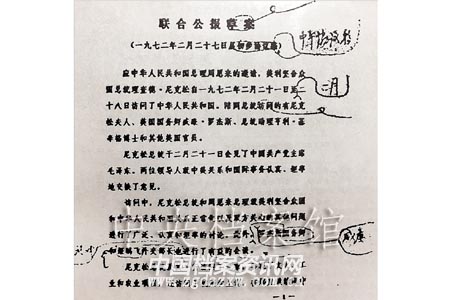 联合公报草案
(一九七二年二月二十七日
应中华人民共和国总理周恩来的邀请，美利坚合众
国总统理查德·尼克松自一九七二年二月二十一日至二
十八日访问了中华人民共和国。陪同总统访问的有尼克
松夫人、美国国务卿威廉·罗杰斯、总统助理亨利·基
辛格博士和其他美国官员。
尼克松总统于二月二十一日会见了中国共产党主席
毛泽东。两位领导人就中美关系和国际事务认真、坦率
地交换了意见。
访问中，尼克松总统和周恩来总理就美利坚合众国
和中华人民共和国关系正常化以及双方关心的其他问题
进行了广泛、认真和坦率的讨论。此外，
和姬鹏飞外交部长也进行了会谈。
尼克松总统
业和农业项目
中央档案馆
中国档案资讯网
www.zgdazxw.com.cn
二月